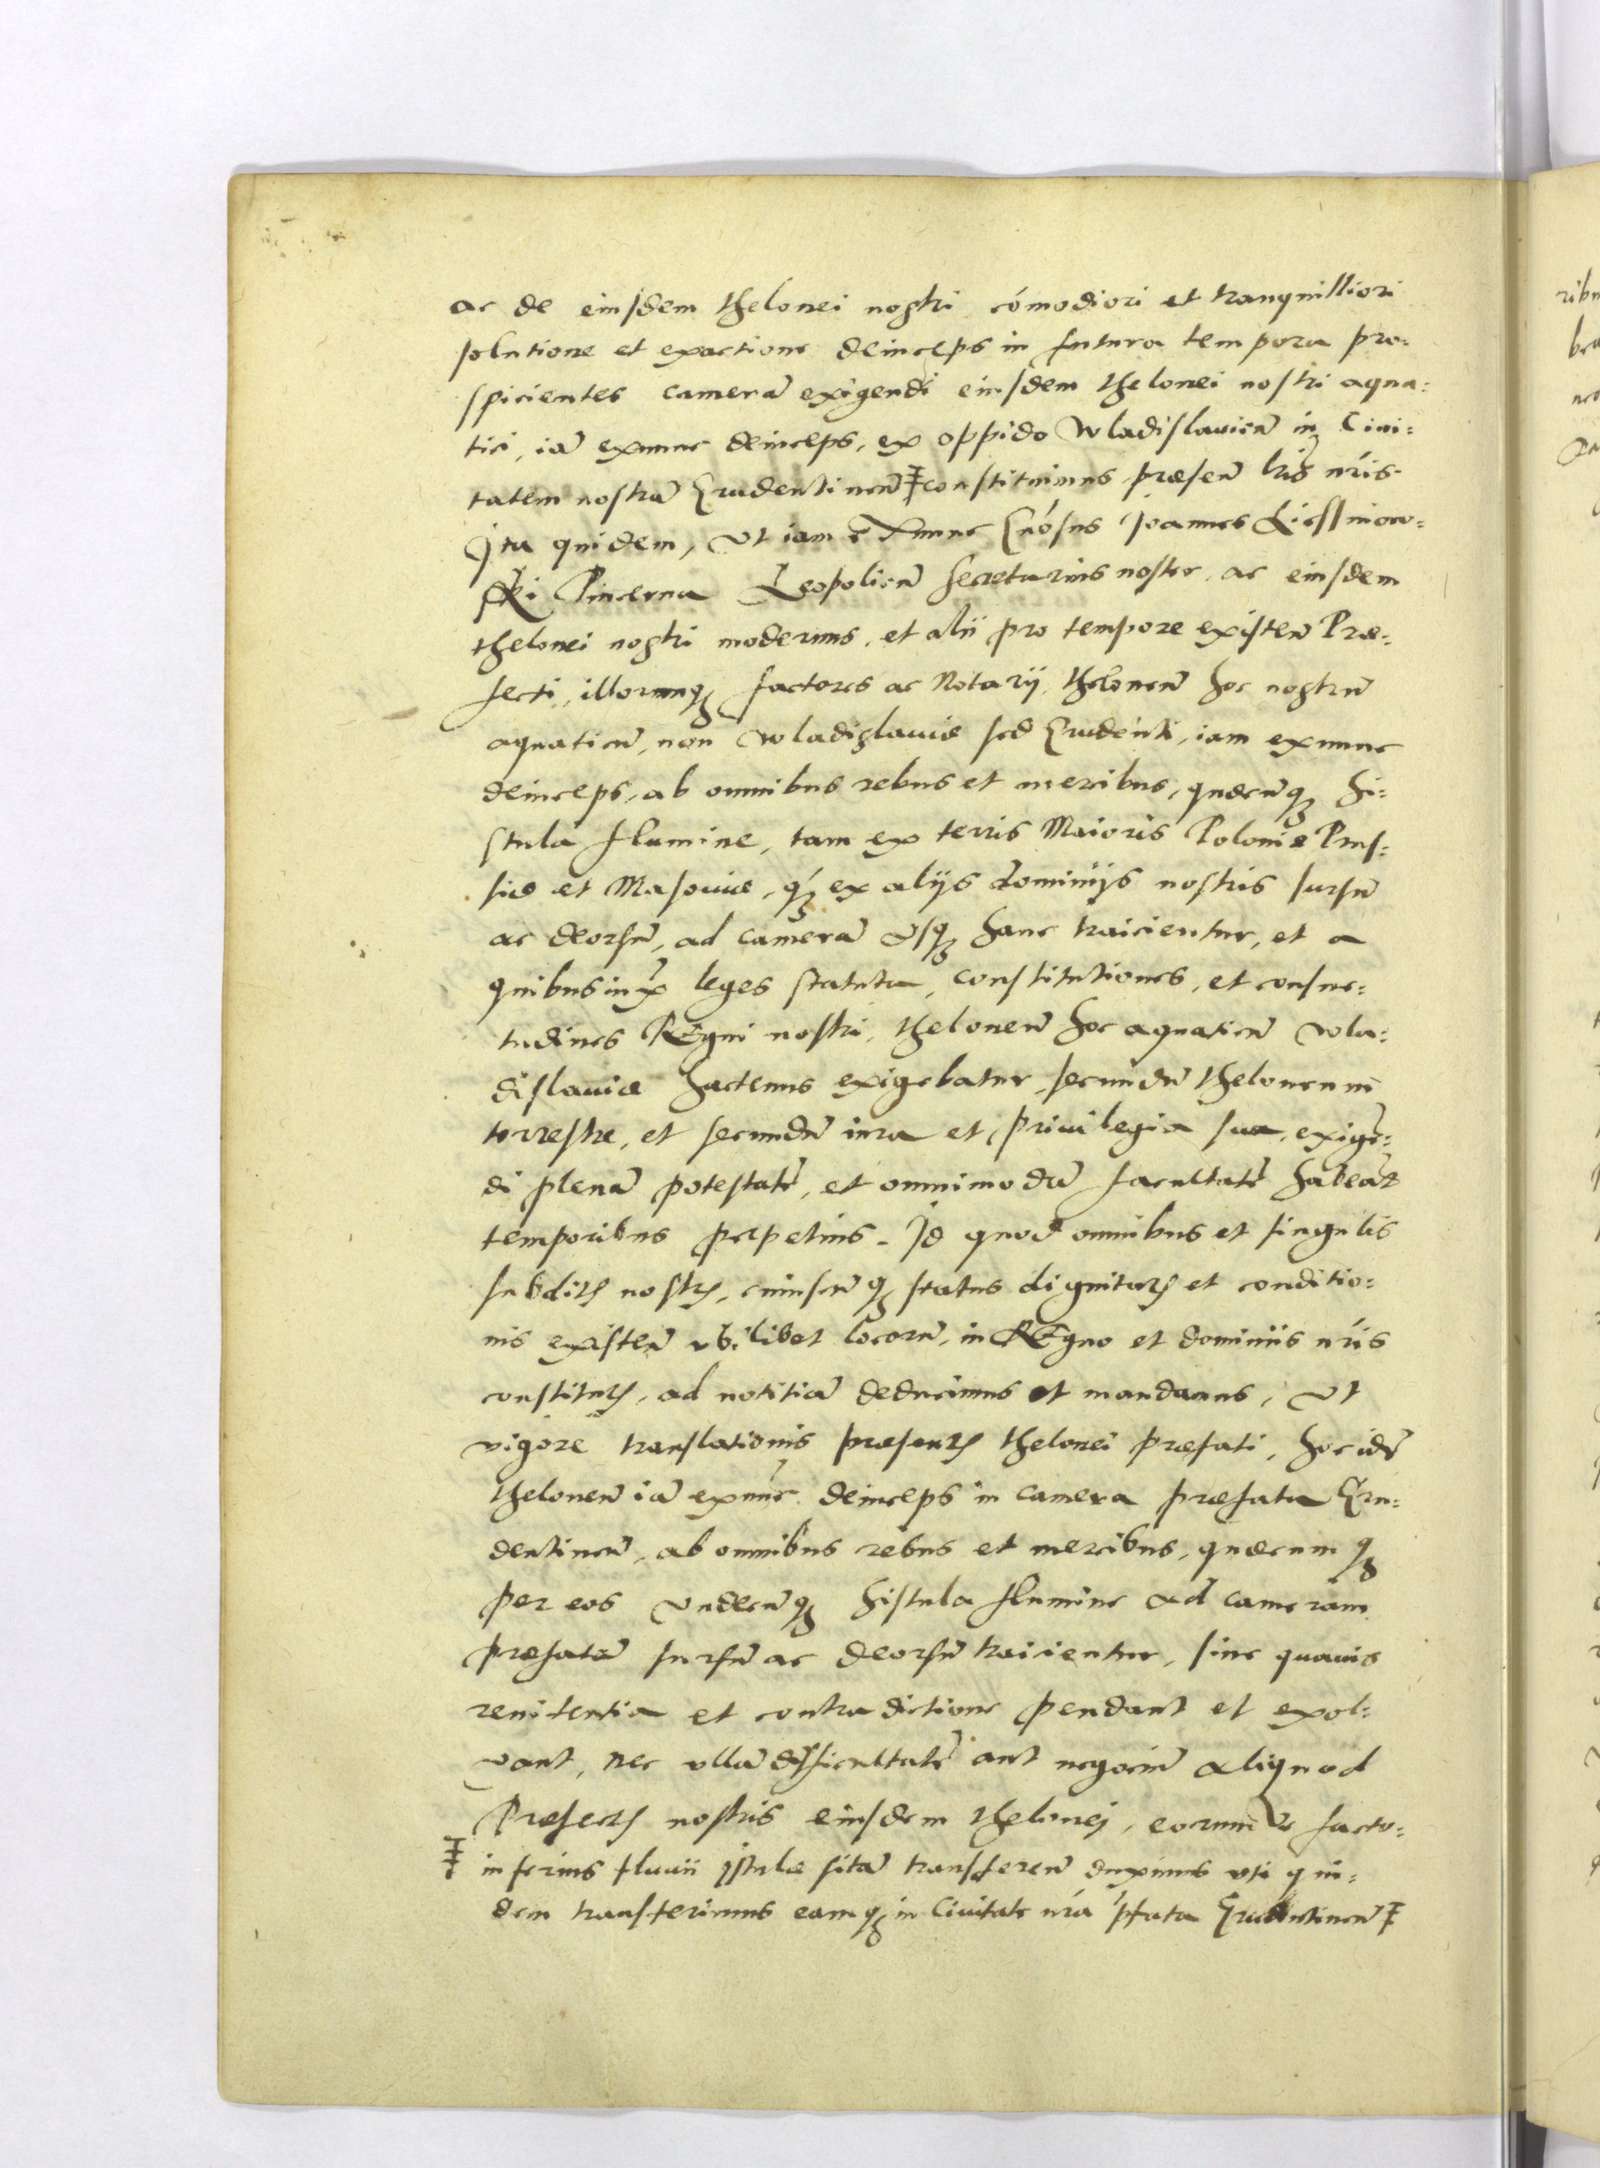 ac de eiusdem thelonei nostri cõmodiori et tranquilliori
solutione et exactione deinceps in futura tempora pro:
spicientes camerã exigendi eiusdem thelonei nostri aqua:
tici, iã exnunc deinceps, ex oppido Wladislauieñ in Ciui:
tatem nostrã Grudentineñ ‡ constituimus præseñ lr̃is nr̃is
Ita quidem, vt iam exnunc Gñosus Joannes
Pincerna Leopolieñ Secretarius noster, ac eiusdem
thelonei nostri modernus, et alii pro tempore existeñ Præ:
fecti, illorumq; factores ac Notarij, theloneũ hoc nostrũ
aquaticũ, non Wladislauiæ sed Grudenti, iam exnunc
deinceps, ab omnibus rebus et mercibus, quæcũq; Hi:
stula flumine, tam ex terris Maioris Poloniæ Prus:
siæ et Masouiæ, q̃; ex alijs dominijs nostris sursũ
ac deorsũ, ad camerã vsq; hanc traicientur, et a
quibus iux̃ leges statuta, constitutiones, et consue:
tudines REgni nostri, theloneũ hoc aquaticũ Wla:
dislauiæ hactenus exigebatur, secundũ theloneum
terrestre, et secundũ iura et priuilegia sua, exigẽ:
di plenã potestatẽ, et omnimodã facultatẽ habeãt
temporibus perpetuis. Id quod omnibus et singulis
subditis nostris, cuiuscũq; status dignitatis et conditio:
nis existeñ vbilibet locorũ, in REgno et dominiis nr̃is
constitutis, ad notitiã deducimus et mandamus, vt
vigore translationis præsentis thelonei præfati, hoc idẽ
theloneũ iã exnũc deinceps in camera præfata Gru:
dentineñ, ab omnibus rebus et mercibus, quæcumq;
per eos vndecũq; Histula flumine ad cameram
præfatã sursũ ac deorsũ traicientur, sine quauis
renitentia et contradictione pendant et exol:
vant, nec vllã difficultatẽ aut negociũ aliquod
Præfectis nostris eiusdem thelonej, eorumve facto:
‡ inferius fluuii Istulæ sitã transfereñ duximus vti qui:
dem transferimus eamq; in Ciuitate nr̃a p̃fata Grudentineñ ‡